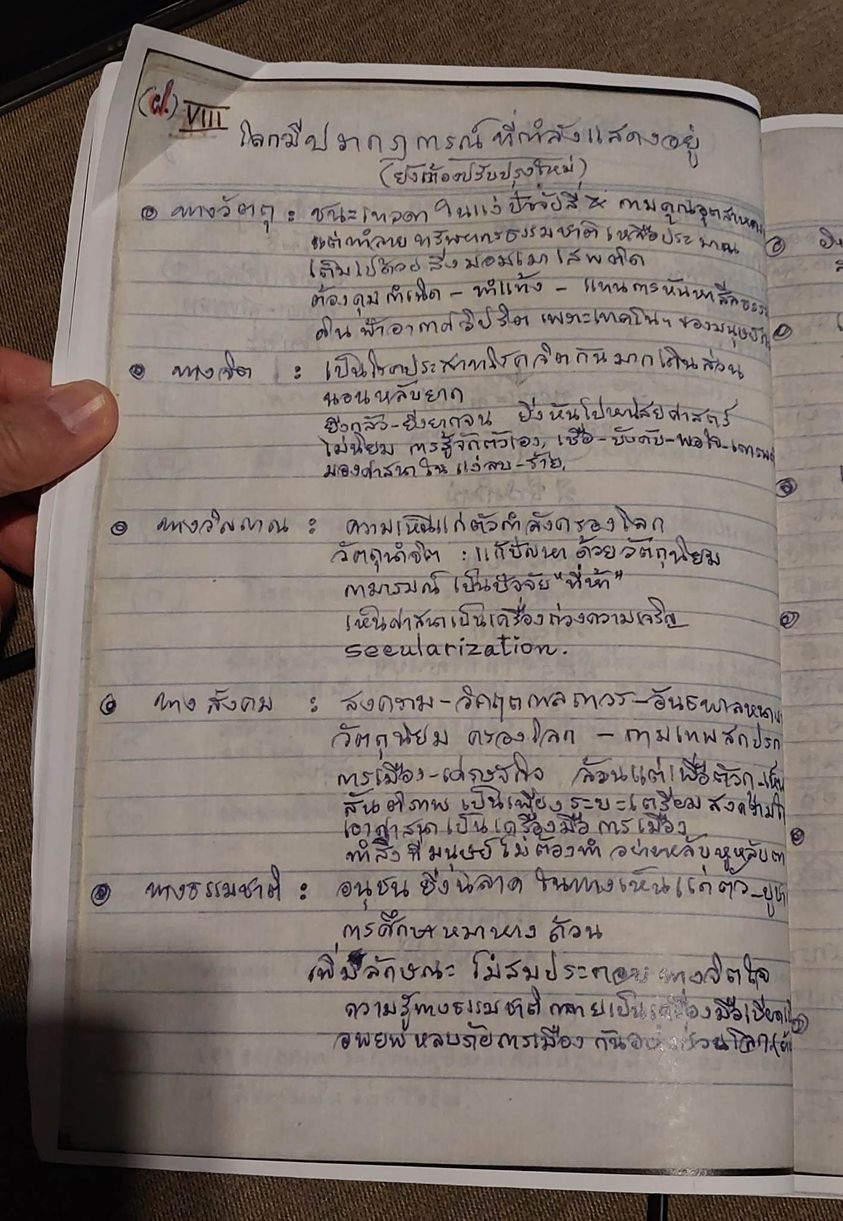 (ฝ.) VIII
โลกมีปรากฏการณ์ที่กำลังแสดงอยู่
(ยังต้องปรับปรุงใหม่)
ทางวัตถุ : ชนะเทวดา ในแง่ปัจจัยสี่ × กามคุณอุตสาหกรรม
แต่ทำลายทรัพยากรธรรมชาติเหลือประมาณ
เต็มไปด้วยสิ่งมอมเมาเสพติด
ต้องคุมกำเนิด - ทำแท้ง - แทนการหันหาศีลธรรม
ดินฟ้าอากาศวิปริต เพราะเทคโนฯ ของมนุษย์
ทางจิต : เป็นโรคประสาทโรคจิตกันมากเกินส่วน
นอนหลับยาก
ยิ่งกลัว-ยิ่งยากจน ยิ่งหันไปหาไสยศาสตร์
ไม่นิยม การรู้จักตัวเอง, เชื่อ-บังคับ-พอใจ-เคารพ
มองศาสนาในแง่ลบ-ร้าย.
ทางวิญญาณ : ความเห็นแก่ตัวกำลังครองโลก
วัตถุนำจิต : แก้ปัญหาด้วยวัตถุนิยม
กามารมณ์ เป็นปัจจัย "ที่ห้า"
เห็นศาสนาเป็นเครื่องถ่วงความเจริญ
secularization.
ทางสังคม : สงคราม-วิกฤตกาลถาวร-อันธพาล
วัตถุนิยม ครองโลก - กามเทพสกปรก
การเมือง-เศรษฐกิจ ล้วนแต่เพื่อตัวกู-
สันติภาพ เป็นเพียงระยะเตรียมสงคราม
เอาศาสนาเป็นเครื่องมือการเมือง
ทำสิ่งที่มนุษย์ไม่ต้องทำ อย่างหลับหูหลับตา
ทางธรรมชาติ : อนุชนยิ่งฉลาด ในทางเห็นแก่ตัว-
การศึกษาหมาหางด้วน
เพิ่มลักษณะ ไม่สมประกอบทางจิตใจ
ความรู้ทางธรรมชาติกลายเป็นเครื่องมือ
อพยพหลบภัยการเมือง กัน